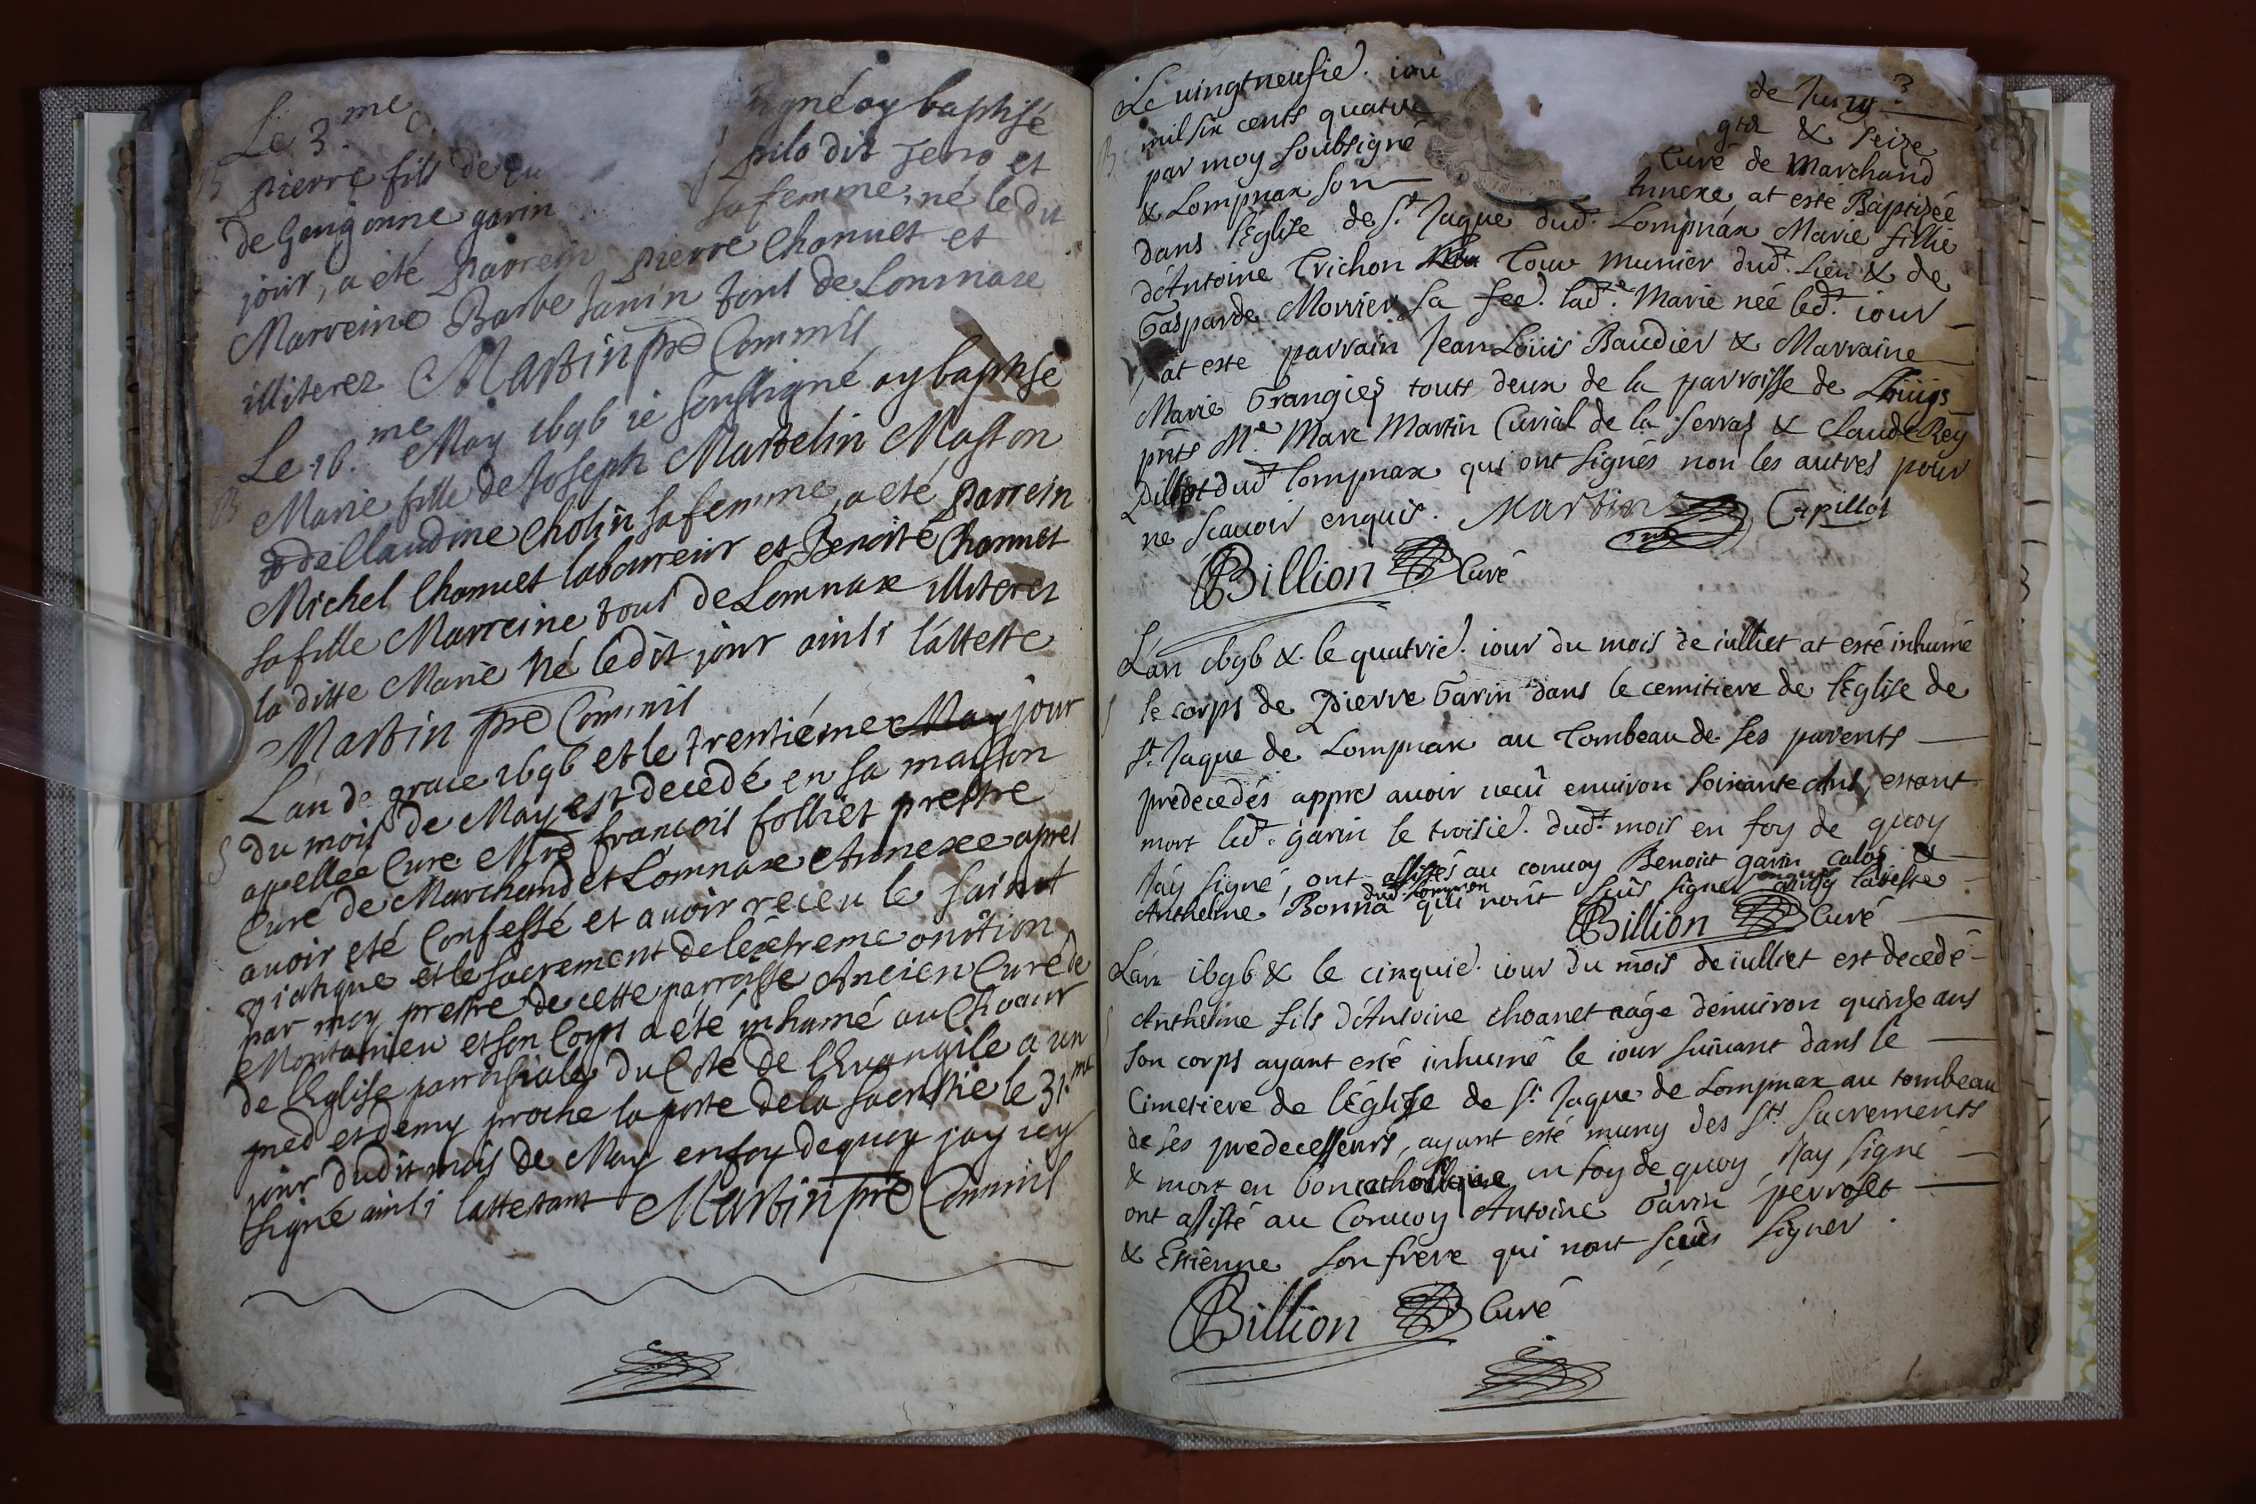 Le 3.me
signé ay baptisé
B pierre fils de
pilo dit jeno et
de Gougonne garin
sa femme, né le du
jour, a été parrein pierre Chonuet et
Marreine Barbe Janin tous de Lomnaxe
illiterez Martin pre Commis
Le 10.me May 1696 ie soussigné ay baptisé
B Marie fille de Joseph Martelin Masson
& de Claudine Cholin sa femme, a eté parrein
Michel Chonuet laboureur et Benoite Chonuet
sa fille Marreine tous de Lomnaxe illiterez
la ditte Marie né ledit jour ainsi l'atteste
Martin pre Commis
L'an de grace 1696 et le trentiéme May jour
du mois de May est decedé en sa maison
S apellée Cure Mre françois folliet prestre
Curé de Marchand et Lomnaxe Annexe apres
avoir eté Confessé et auoir receu le Sainct
viatique et le sacrement de lextreme onction
par moy prestre de cette parroisse Ancien Curé de
Montanieu et son Corps a été inhumé au Choeur
de l'Eglise parrossiale du Coté de l'Euangile a un
pied et demy proche la porte de la sacristie le 31.me
jour dudit mois de May en foy de quoy jay icy
signé ainsi lattestant Martin pre Commis
Le vingtneufie. iou
de Juing
mil six cents quatre
gtz & seize
B par moy soubsigné
Curé de Marchand
& Lompnax son
Annexe, at esté Baptizée
dans l'Eglise de St. Jaque dud.t Lompnax Marie fillie
d'Antoine Trichon Tour munier dud.t Lieu & de
Gasparde Morrier sa fee. lad.te Marie née led.t iour
at este parrain Jean Loüis Baudier & Marraine
Marie Grangier touts deux de la parroisse de
pnts Me. Marc Martin Curial de la Serraz & Claude Rey
Pillot dud.t Lompnax qui ont signés non les autres pour
ne scauoir enquis. Martin C pillot
Billion Curé
L'an 1696 & le quatrie. iour du mois de iulliet at esté inhumé
S le corps de Pierre Garin dans le cemitiere de l'Eglise de
St. Jaque de Lompnax au tombeau de ses parents
predecedés appres auoir uecu enuiron soixante Ans, estant
mort led.t garin le troisie. dud.t mois en foy de quoy
J'ay signé, ont assistés au conuoy Benoict garin &
Anthelme Bonna dud. Lompnax qui n'ont sçus signer enquis ainsy l'atteste
Billion Curé
L'an 1696 & le cinquie. iour du mois de iulliet est decedé
Anthelme fils d'Antoine Choanet aáge denuiron quinse ans
son corps ayant esté inhumé le iour suiuant dans le
Cimetiere de l'Églize de St. Jaque de Lompnax au tombeau
de ses predecesseurs, ayant esté muny des Sts. Sacrements
& mort en bon catholique en foy de quoy J'ay signé
ont assisté au Conuoy Antoine Garin perroset
& Estienne son frere qui n'ont sçeus signer.
Billion Curé